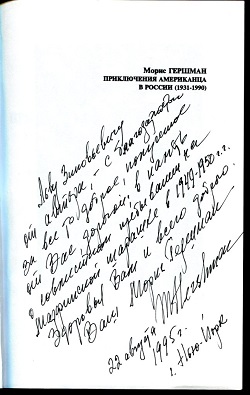 Морис ГЕРШМАН
ПРИКЛЮЧЕНИЯ АМЕРИКАНЦА
В РОССИИ (1931-1990)
Льву Зиновьевичу
от автора, - с благодарностью
за все доброе, полученное
от Вас, дорогой, в память
о совместном пребывании на
Марфинской шарашке в 1949-1950 г.г.
Здоровья Вам и всего доброго.
Ваш Морис Гершман
22 августа
1995 г.
г. Нью-Йорк